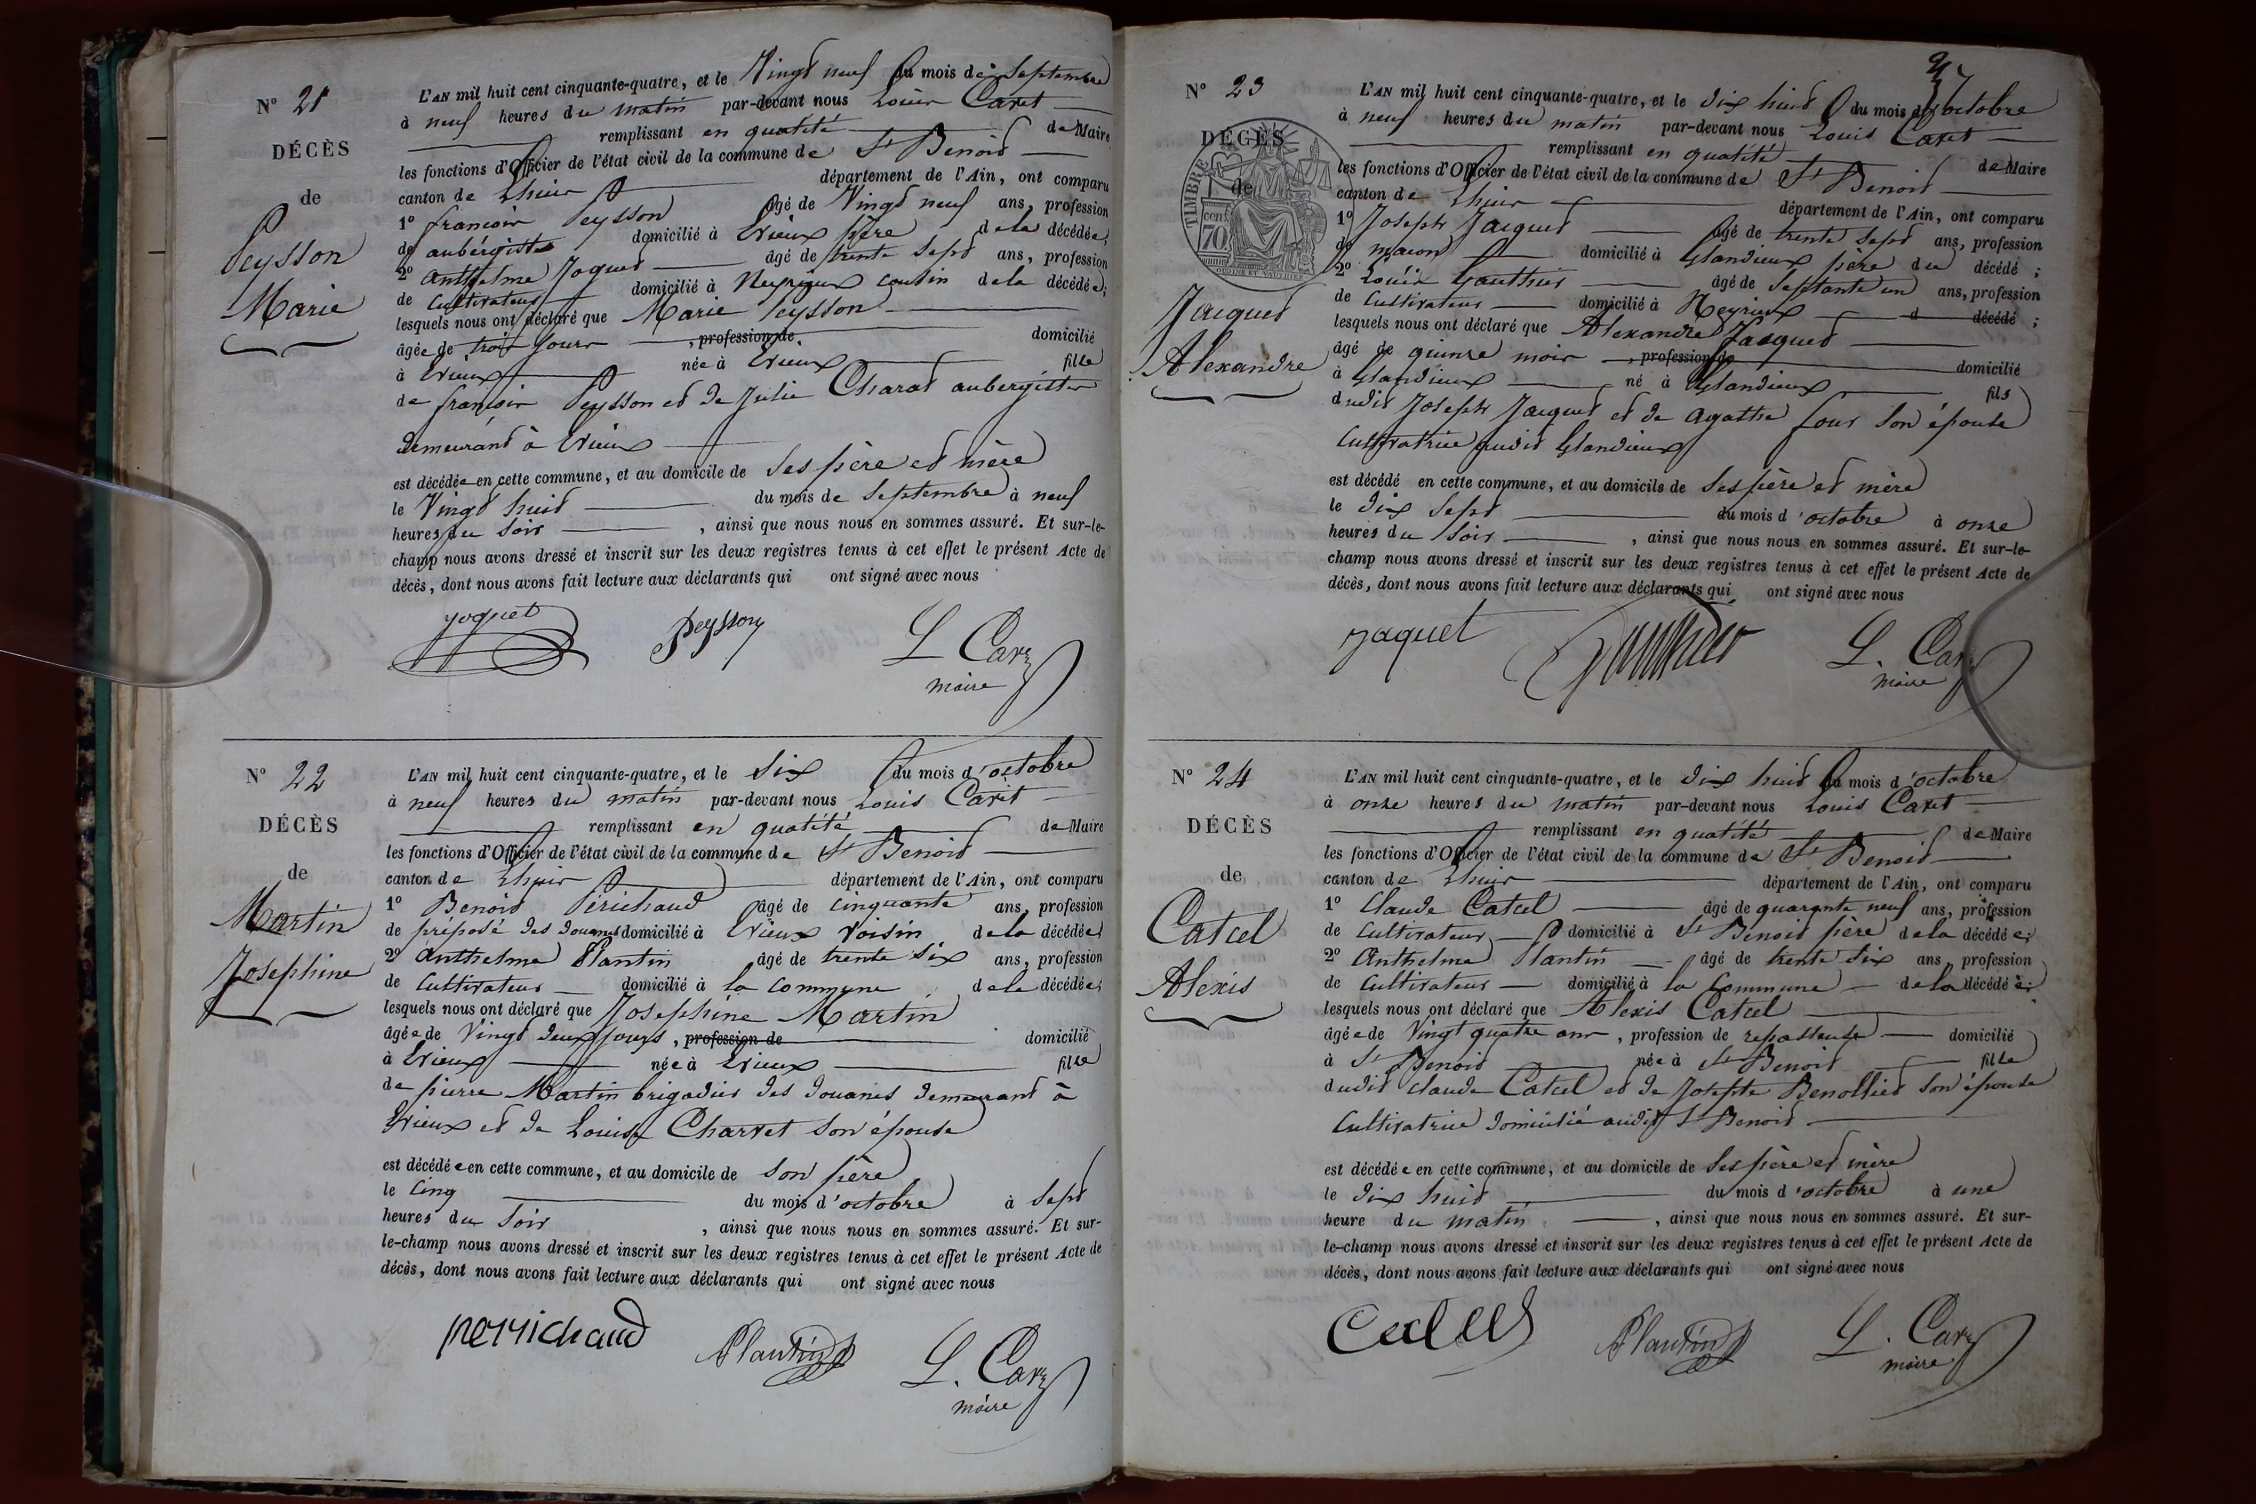 N° 21
DÉCÈS
de
Peysson
Marie
L'AN mil huit cent cinquante-quatre, et le Vingt neuf du mois de Septembre
à neuf heures du matin par-devant nous Louis Caret
remplissant en qualité de Maire
les fonctions d'Officier de l'état civil de la commune de St Benoit
canton de Lhuis département de l'Ain, ont comparu
1° françois Peysson âgé de Vingt neuf ans, profession
de aubergiste domicilié à Evieux père de la décédée;
2° Anthelme Joquet âgé de trente sept ans, profession
de Cultivateur domicilié à Neyrieux cousin de la décédée;
lesquels nous ont déclaré que Marie Peysson
âgée de trois jours, profession de domicilié
à Evieux née à Evieux fille
de françois Peysson et de Julie Charat aubergistes
demeurant à Evieux
est décédée en cette commune, et au domicile de Ses père et mère
le Vingt huit du mois de Septembre à neuf
heures du Soir, ainsi que nous nous en sommes assuré. Et sur-le-
champ nous avons dressé et inscrit sur les deux registres tenus à cet effet le présent Acte de
décès, dont nous avons fait lecture aux déclarants qui ont signé avec nous
joquet Peysson L Caret
maire
N° 22
DÉCÈS
de
Martin
Josephine
L'AN mil huit cent cinquante-quatre, et le Six du mois d'octobre
à neuf heures du matin par-devant nous Louis Caret
remplissant en qualité de Maire
les fonctions d'Officier de l'état civil de la commune de St Benoit
canton de Lhuis département de l'Ain, ont comparu
1° Benoit Périchaud âgé de cinquante ans, profession
de préposé des douanes domicilié à Evieux voisin de la décédée;
2° Anthelme Plantin âgé de trente six ans, profession
de Cultivateur domicilié à la Commune de la décédée;
lesquels nous ont déclaré que Josephine Martin
âgée de Vingt deux jours, profession de domicilié
à Evieux née à Evieux fille
de pierre Martin brigadier des douanes demeurant à
Evieux et de Louise Charvet Son épouse
est décédée en cette commune, et au domicile de Son père
le Cinq du mois d'octobre à Sept
heures du Soir, ainsi que nous nous en sommes assuré. Et sur-
le-champ nous avons dressé et inscrit sur les deux registres tenus à cet effet le présent Acte de
décès, dont nous avons fait lecture aux déclarants qui ont signé avec nous
perrichaud Plantin L. Caret
maire
N° 23
DÉCÈS
de
TIMBRE
cen
70
Jacquet
Alexandre
L'AN mil huit cent cinquante-quatre, et le dix huit du mois d'octobre
à neuf heures du matin par-devant nous Louis Caret
remplissant en qualité de Maire
les fonctions d'Officier de l'état civil de la commune de St Benoit
canton de Lhuis département de l'Ain, ont comparu
1° Joseph Jacquet âgé de trente sept ans, profession
de maçon domicilié à Glandieux père du décédé;
2° Louis Gauthier âgé de Septante un ans, profession
de Cultivateur domicilié à Neyrieux d décédé;
lesquels nous ont déclaré que Alexandre Jacquet
âgé de quinze mois, profession de domicilié
à Glandieux né à Glandieux fils
dudit Joseph Jacquet et de Agathe four Son épouse
Cultivatrice audit Glandieux
est décédé en cette commune, et au domicile de Ses père et mère
le Dix Sept du mois d'octobre à onze
heures du Soir, ainsi que nous nous en sommes assuré. Et sur-le-
champ nous avons dressé et inscrit sur les deux registres tenus à cet effet le présent Acte de
décès, dont nous avons fait lecture aux déclarants qui ont signé avec nous
jaquet Gauthier L. Caret
maire
N° 24
DÉCÈS
de
Catcel
Alexis
L'AN mil huit cent cinquante-quatre, et le dix huit du mois d'octobre
à onze heures du matin par-devant nous Louis Caret
remplissant en qualité de Maire
les fonctions d'Officier de l'état civil de la commune de St Benoit
canton de Lhuis département de l'Ain, ont comparu
1° Claude Catcel âgé de quarante neuf ans, profession
de Cultivateur domicilié à St Benoit père de la décédée;
2° Anthelme Plantin âgé de trente six ans, profession
de Cultivateur domicilié à la Commune de la décédée;
lesquels nous ont déclaré que Alexis Catcel
âgée de Vingt quatre ans, profession de repasseuse domicilié
à St Benoit née à St Benoit fille
dudit Claude Catcel et de Josephte Benollied Son épouse
Cultivatrice domicilié audit St Benoit
est décédée en cette commune, et au domicile de Ses père et mère
le Dix huit du mois d'octobre à une
heure du matin, ainsi que nous nous en sommes assuré. Et sur-
le-champ nous avons dressé et inscrit sur les deux registres tenus à cet effet le présent Acte de
décès, dont nous avons fait lecture aux déclarants qui ont signé avec nous
Plantin L. Caret
maire